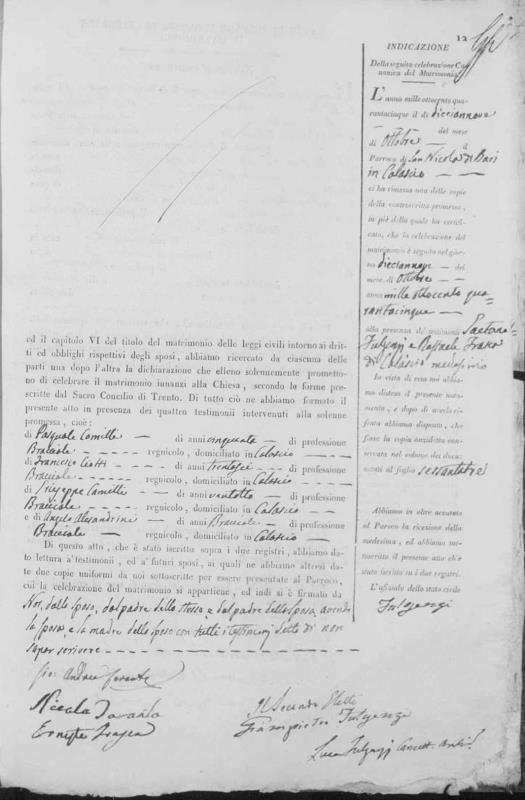 12
ed il capitolo VI del titolo del matrimonio delle leggi civili intorno ai drit-
ti ed obblighi rispettivi degli sposi, abbiamo ricercato da ciascuna delle
parti una dopo l'altra la dichiarazione che elleno solennemente prometto-
no di celebrare il matrimonio innanzi alla Chiesa, secondo le forme pre-
scritte dal Sacro Concilio di Trento. Di tutto ciò ne abbiamo formato il
presente atto in presenza dei quattro testimonii intervenuti alla solenne
promessa, cioè:
di Pasquale Camilli — di anni cinquanta — di professione
Bracciale — regnicolo, domiciliato in Calascio —
di Francesco Ciotti — di anni trentasei — di professione
Bracciale — regnicolo, domiciliato in Calascio —
di Giuseppe Camilli — di anni ventotto — di professione
Bracciale — regnicolo, domiciliato in Calascio —
e di Angelo Alessandrini — di anni Bracciale — di professione
Bracciale — regnicolo, domiciliato in Calascio —
Di questo atto, che è stato iscritto sopra i due registri, abbiamo da-
to lettura a' testimonii, ed a' futuri sposi, ai quali ne abbiamo altresì da-
te due copie uniformi da noi sottoscritte per essere presentate al Parroco,
cui la celebrazione del matrimonio si appartiene, ed indi si è firmato da
Noi, dallo sposo, dal padre dello stesso, e dal padre della sposa, avendo
la sposa, e la madre dello sposo con tutti i testimonj detto di non
saper scrivere —
Gio: Andrea
Nicola Taranta
Ernesto
Il Secondo Eletto
Giampietro Fulgenzi
Luca Fulgenzj Cancell.
INDICAZIONE
Della seguita celebrazione Ca-
nonica del Matrimonio.
L'anno mille ottocento qua-
rantacinque il dì diciannove
— del mese
di Ottobre — il
Parroco di San Nicola di Bari
in Calascio —
ci ha rimessa una delle copie
della controscritta promessa,
in piè della quale ha certifi-
cato, che la celebrazione del
matrimonio è seguita nel gior-
no diciannove — del
mese di Ottobre —
anno mille ottocento qua-
rantacinque —
alla presenza de' testimonii Gaetano
Fulgenzj e Raffaele
di Calascio medesimo
In vista di essa noi abbia-
mo disteso il presente nota-
mento, e dopo di averla ci-
frata abbiamo disposto, che
fosse la copia anzidetta con-
servata nel volume dei docu-
menti al foglio sessantatre
Abbiamo in oltre accusato
al Parroco la ricezione della
medesima, ed abbiamo sot-
toscritto il presente atto ch'è
stato iscritto in i due registri.
L'uffiziale dello stato civile
Fulgenzi